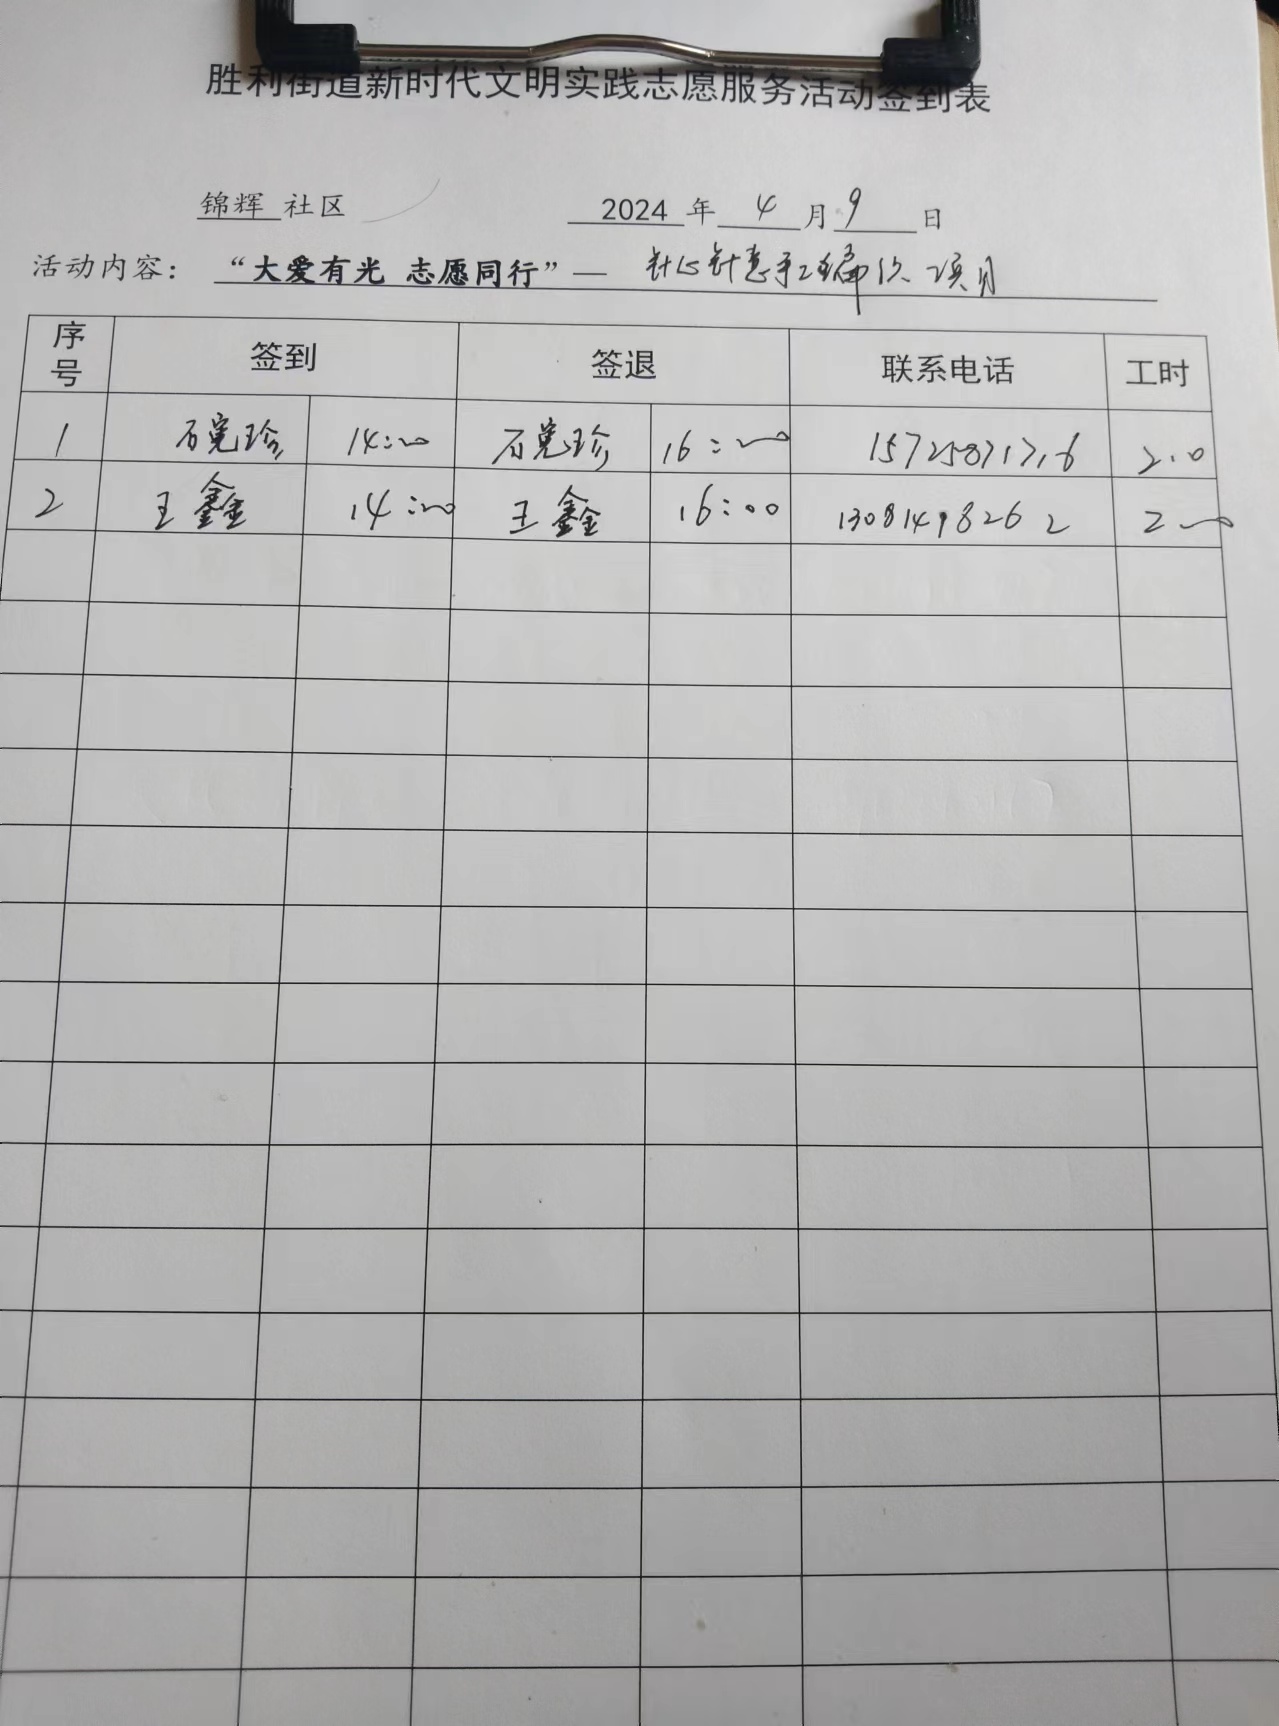 胜利街道新时代文明实践志愿服务活动签到表
锦辉 社区 2024 年 4 月 9 日
活动内容： “大爱有光 志愿同行”— 针心针意手工编织项目
序号 签到 签退 联系电话 工时
1 石 珍 14:00 石 珍 16:00 2.0
2 王鑫 14:00 王鑫 16:00 13081498262 2.00